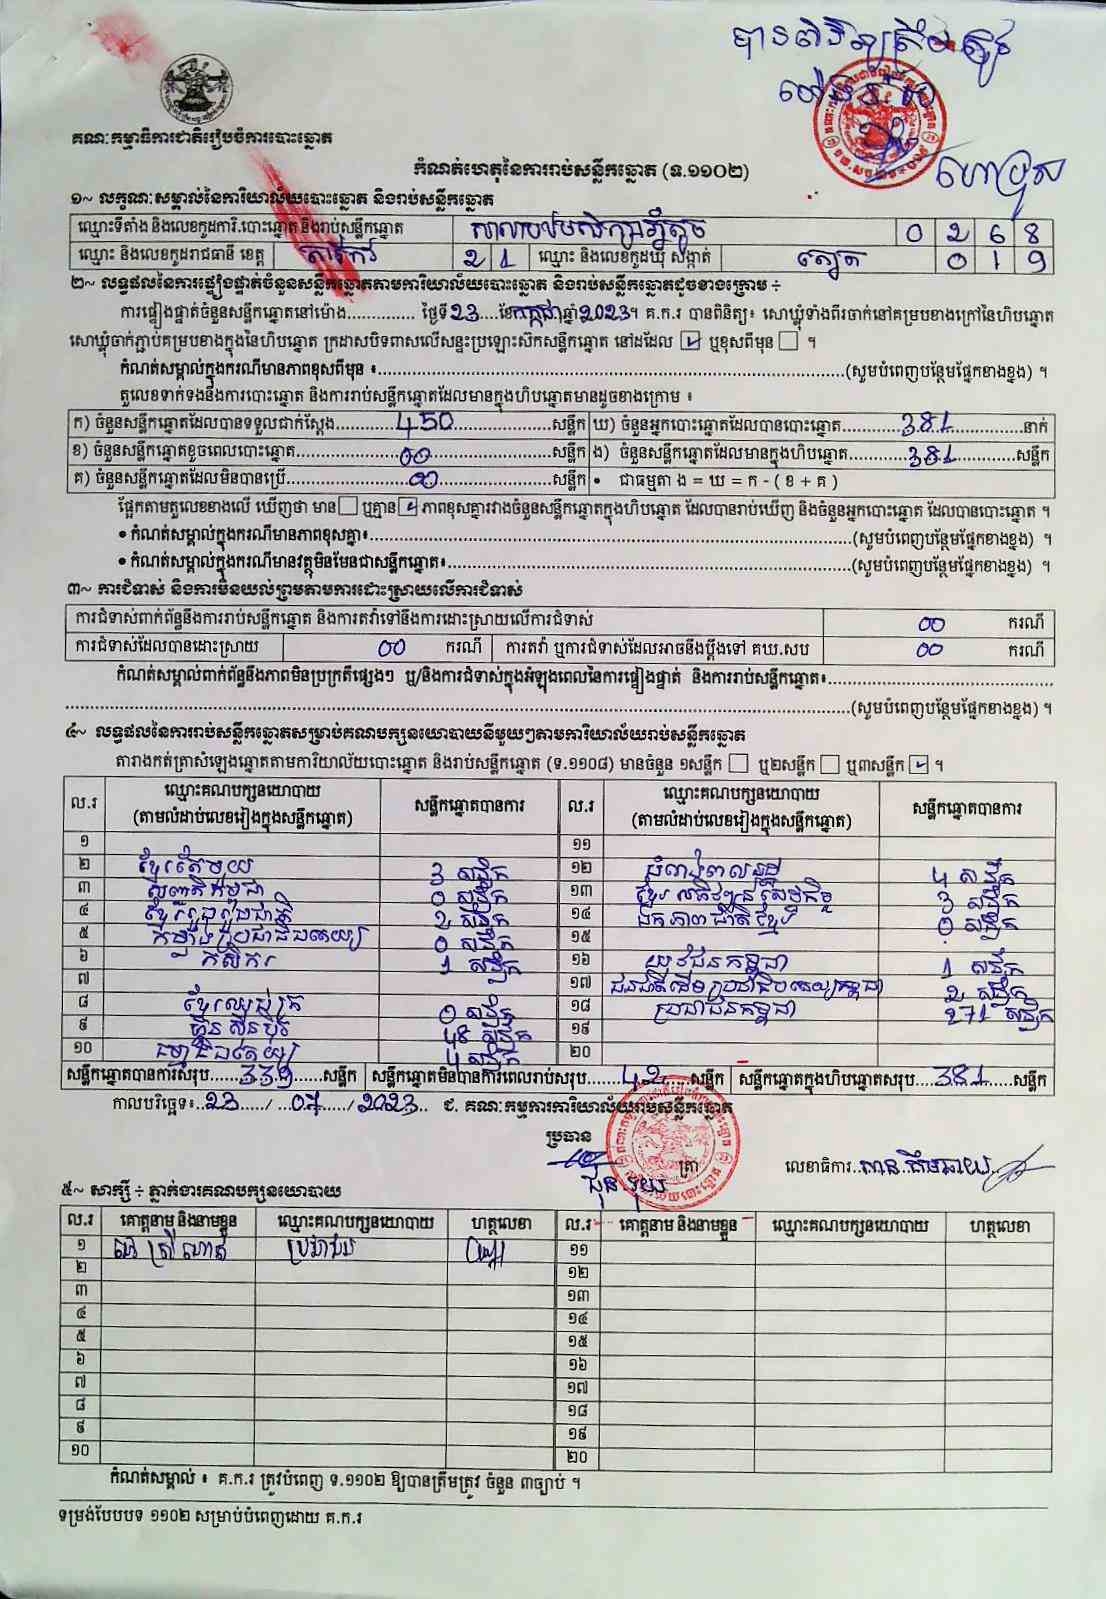 គណៈកម្មាធិការជាតិរៀបចំការបោះឆ្នោត
កំណត់ហេតុនៃការរាប់សន្លឹកឆ្នោត (ទ.១១០២)
១~ លក្ខណៈសម្គាល់នៃការិយាល័យបោះឆ្នោត និងរាប់សន្លឹកឆ្នោត
ឈ្មោះទីតាំង និងលេខកូដការិ.បោះឆ្នោត និងរាប់សន្លឹកឆ្នោត 0 2 6 8
ឈ្មោះ និងលេខកូដរាជធានី ខេត្ត តាកែវ 2 1 ឈ្មោះ និងលេខកូដឃុំ សង្កាត់ 0 1 9
២~ លទ្ធផលនៃការផ្ទៀងផ្ទាត់ចំនួនសន្លឹកឆ្នោតតាមការិយាល័យបោះឆ្នោត និងរាប់សន្លឹកឆ្នោតដូចខាងក្រោម ÷
ការផ្ទៀងផ្ទាត់ចំនួនសន្លឹកឆ្នោតនៅម៉ោង.............. ថ្ងៃទី23....ខែកក្កដាឆ្នាំ2023។ គ.ក.រ បានពិនិត្យ៖ សោឃ្លុំទាំងពីរចាក់នៅគម្របខាងក្រៅនៃហិបឆ្នោត
សោឃ្លុំចាក់ភ្ជាប់គម្របខាងក្នុងនៃហិបឆ្នោត ក្រដាសបិទពាសលើសន្ទះប្រឡោះស៊កសន្លឹកឆ្នោត នៅដដែល ☑ ឬខុសពីមុន ☐ ។
កំណត់សម្គាល់ក្នុងករណីមានភាពខុសពីមុន ៖..............(សូមបំពេញបន្ថែមផ្នែកខាងខ្នង) ។
តួលេខទាក់ទងនឹងការបោះឆ្នោត និងការរាប់សន្លឹកឆ្នោតដែលមានក្នុងហិបឆ្នោតមានដូចខាងក្រោម ៖
ក) ចំនួនសន្លឹកឆ្នោតដែលបានទទួលជាក់ស្ដែង..........450..........សន្លឹក ឃ) ចំនួនអ្នកបោះឆ្នោតដែលបានបោះឆ្នោត..........381..........នាក់
ខ) ចំនួនសន្លឹកឆ្នោតខូចពេលបោះឆ្នោត..........00..........សន្លឹក ង) ចំនួនសន្លឹកឆ្នោតដែលមានក្នុងហិបឆ្នោត..........381..........សន្លឹក
គ) ចំនួនសន្លឹកឆ្នោតដែលមិនបានប្រើ..........00..........សន្លឹក • ជាធម្មតា ង = ឃ = ក - ( ខ + គ )
ផ្អែកតាមតួលេខខាងលើ ឃើញថា មាន☐ ឬគ្មាន☑ ភាពខុសគ្នារវាងចំនួនសន្លឹកឆ្នោតក្នុងហិបឆ្នោត ដែលបានរាប់ឃើញ និងចំនួនអ្នកបោះឆ្នោត ដែលបានបោះឆ្នោត ។
• កំណត់សម្គាល់ក្នុងករណីមានភាពខុសគ្នា៖..............(សូមបំពេញបន្ថែមផ្នែកខាងខ្នង) ។
• កំណត់សម្គាល់ក្នុងករណីមានវត្ថុមិនមែនជាសន្លឹកឆ្នោត៖..............(សូមបំពេញបន្ថែមផ្នែកខាងខ្នង) ។
៣~ ការជំទាស់ និងការមិនយល់ព្រមតាមការដោះស្រាយលើការជំទាស់
ការជំទាស់ពាក់ព័ន្ធនឹងការរាប់សន្លឹកឆ្នោត និងការតវ៉ាទៅនឹងការដោះស្រាយលើការជំទាស់ 00 ករណី
ការជំទាស់ដែលបានដោះស្រាយ 00 ករណី ការតវ៉ា ឬការជំទាស់ដែលអាចនឹងប្ដឹងទៅ គឃ.សប 00 ករណី
កំណត់សម្គាល់ពាក់ព័ន្ធនឹងភាពមិនប្រក្រតីផ្សេងៗ ឬ/និងការជំទាស់ក្នុងអំឡុងពេលនៃការផ្ទៀងផ្ទាត់ និងការរាប់សន្លឹកឆ្នោត៖..............
..............(សូមបំពេញបន្ថែមផ្នែកខាងខ្នង) ។
៤~ លទ្ធផលនៃការរាប់សន្លឹកឆ្នោតសម្រាប់គណបក្សនយោបាយនីមួយៗតាមការិយាល័យរាប់សន្លឹកឆ្នោត
តារាងកត់ត្រាសំឡេងឆ្នោតតាមការិយាល័យបោះឆ្នោត និងរាប់សន្លឹកឆ្នោត (ទ.១១០៨) មានចំនួន ១សន្លឹក ☐ ឬ២សន្លឹក ☐ ឬ៣សន្លឹក ☑ ។
ល.រ ឈ្មោះគណបក្សនយោបាយ សន្លឹកឆ្នោតបានការ ល.រ ឈ្មោះគណបក្សនយោបាយ សន្លឹកឆ្នោតបានការ
(តាមលំដាប់លេខរៀងក្នុងសន្លឹកឆ្នោត) (តាមលំដាប់លេខរៀងក្នុងសន្លឹកឆ្នោត)
១ ១១
២ ខ្មែរតែមួយ 3 សន្លឹក ១២ 4 សន្លឹក
៣ 0 សន្លឹក ១៣ 3 សន្លឹក
៤ 2 សន្លឹក ១៤ ឯកភាពជាតិខ្មែរ 0 សន្លឹក
៥ កម្លាំងប្រជាធិបតេយ្យ 0 សន្លឹក ១៥
៦ កសិករ 1 សន្លឹក ១៦ យុវជនកម្ពុជា 1 សន្លឹក
៧ ១៧ 2 សន្លឹក
៨ 0 សន្លឹក ១៨ ប្រជាជនកម្ពុជា 271 សន្លឹក
៩ ហ៊្វុនស៊ិនប៉ិច 48 សន្លឹក ១៩
១០ 4 សន្លឹក ២០
សន្លឹកឆ្នោតបានការសរុប......339......សន្លឹក សន្លឹកឆ្នោតមិនបានការពេលរាប់សរុប......42......សន្លឹក សន្លឹកឆ្នោតក្នុងហិបឆ្នោតសរុប...381.....សន្លឹក
កាលបរិច្ឆេទ៖..23...../...07...../2023.. ជ. គណៈកម្មការការិយាល័យរាប់សន្លឹកឆ្នោត
ប្រធាន
ត្រា លេខាធិការ
៥~ សាក្សី ÷ ភ្នាក់ងារគណបក្សនយោបាយ
ល.រ គោត្តនាម និងនាមខ្លួន ឈ្មោះគណបក្សនយោបាយ ហត្ថលេខា ល.រ គោត្តនាម និងនាមខ្លួន ឈ្មោះគណបក្សនយោបាយ ហត្ថលេខា
១ ១១
២ ១២
៣ ១៣
៤ ១៤
៥ ១៥
៦ ១៦
៧ ១៧
៨ ១៨
៩ ១៩
១០ ២០
កំណត់សម្គាល់ ៖ គ.ក.រ ត្រូវបំពេញ ទ.១១០២ ឱ្យបានត្រឹមត្រូវ ចំនួន ៣ច្បាប់ ។
ទម្រង់បែបបទ ១១០២ សម្រាប់បំពេញដោយ គ.ក.រ